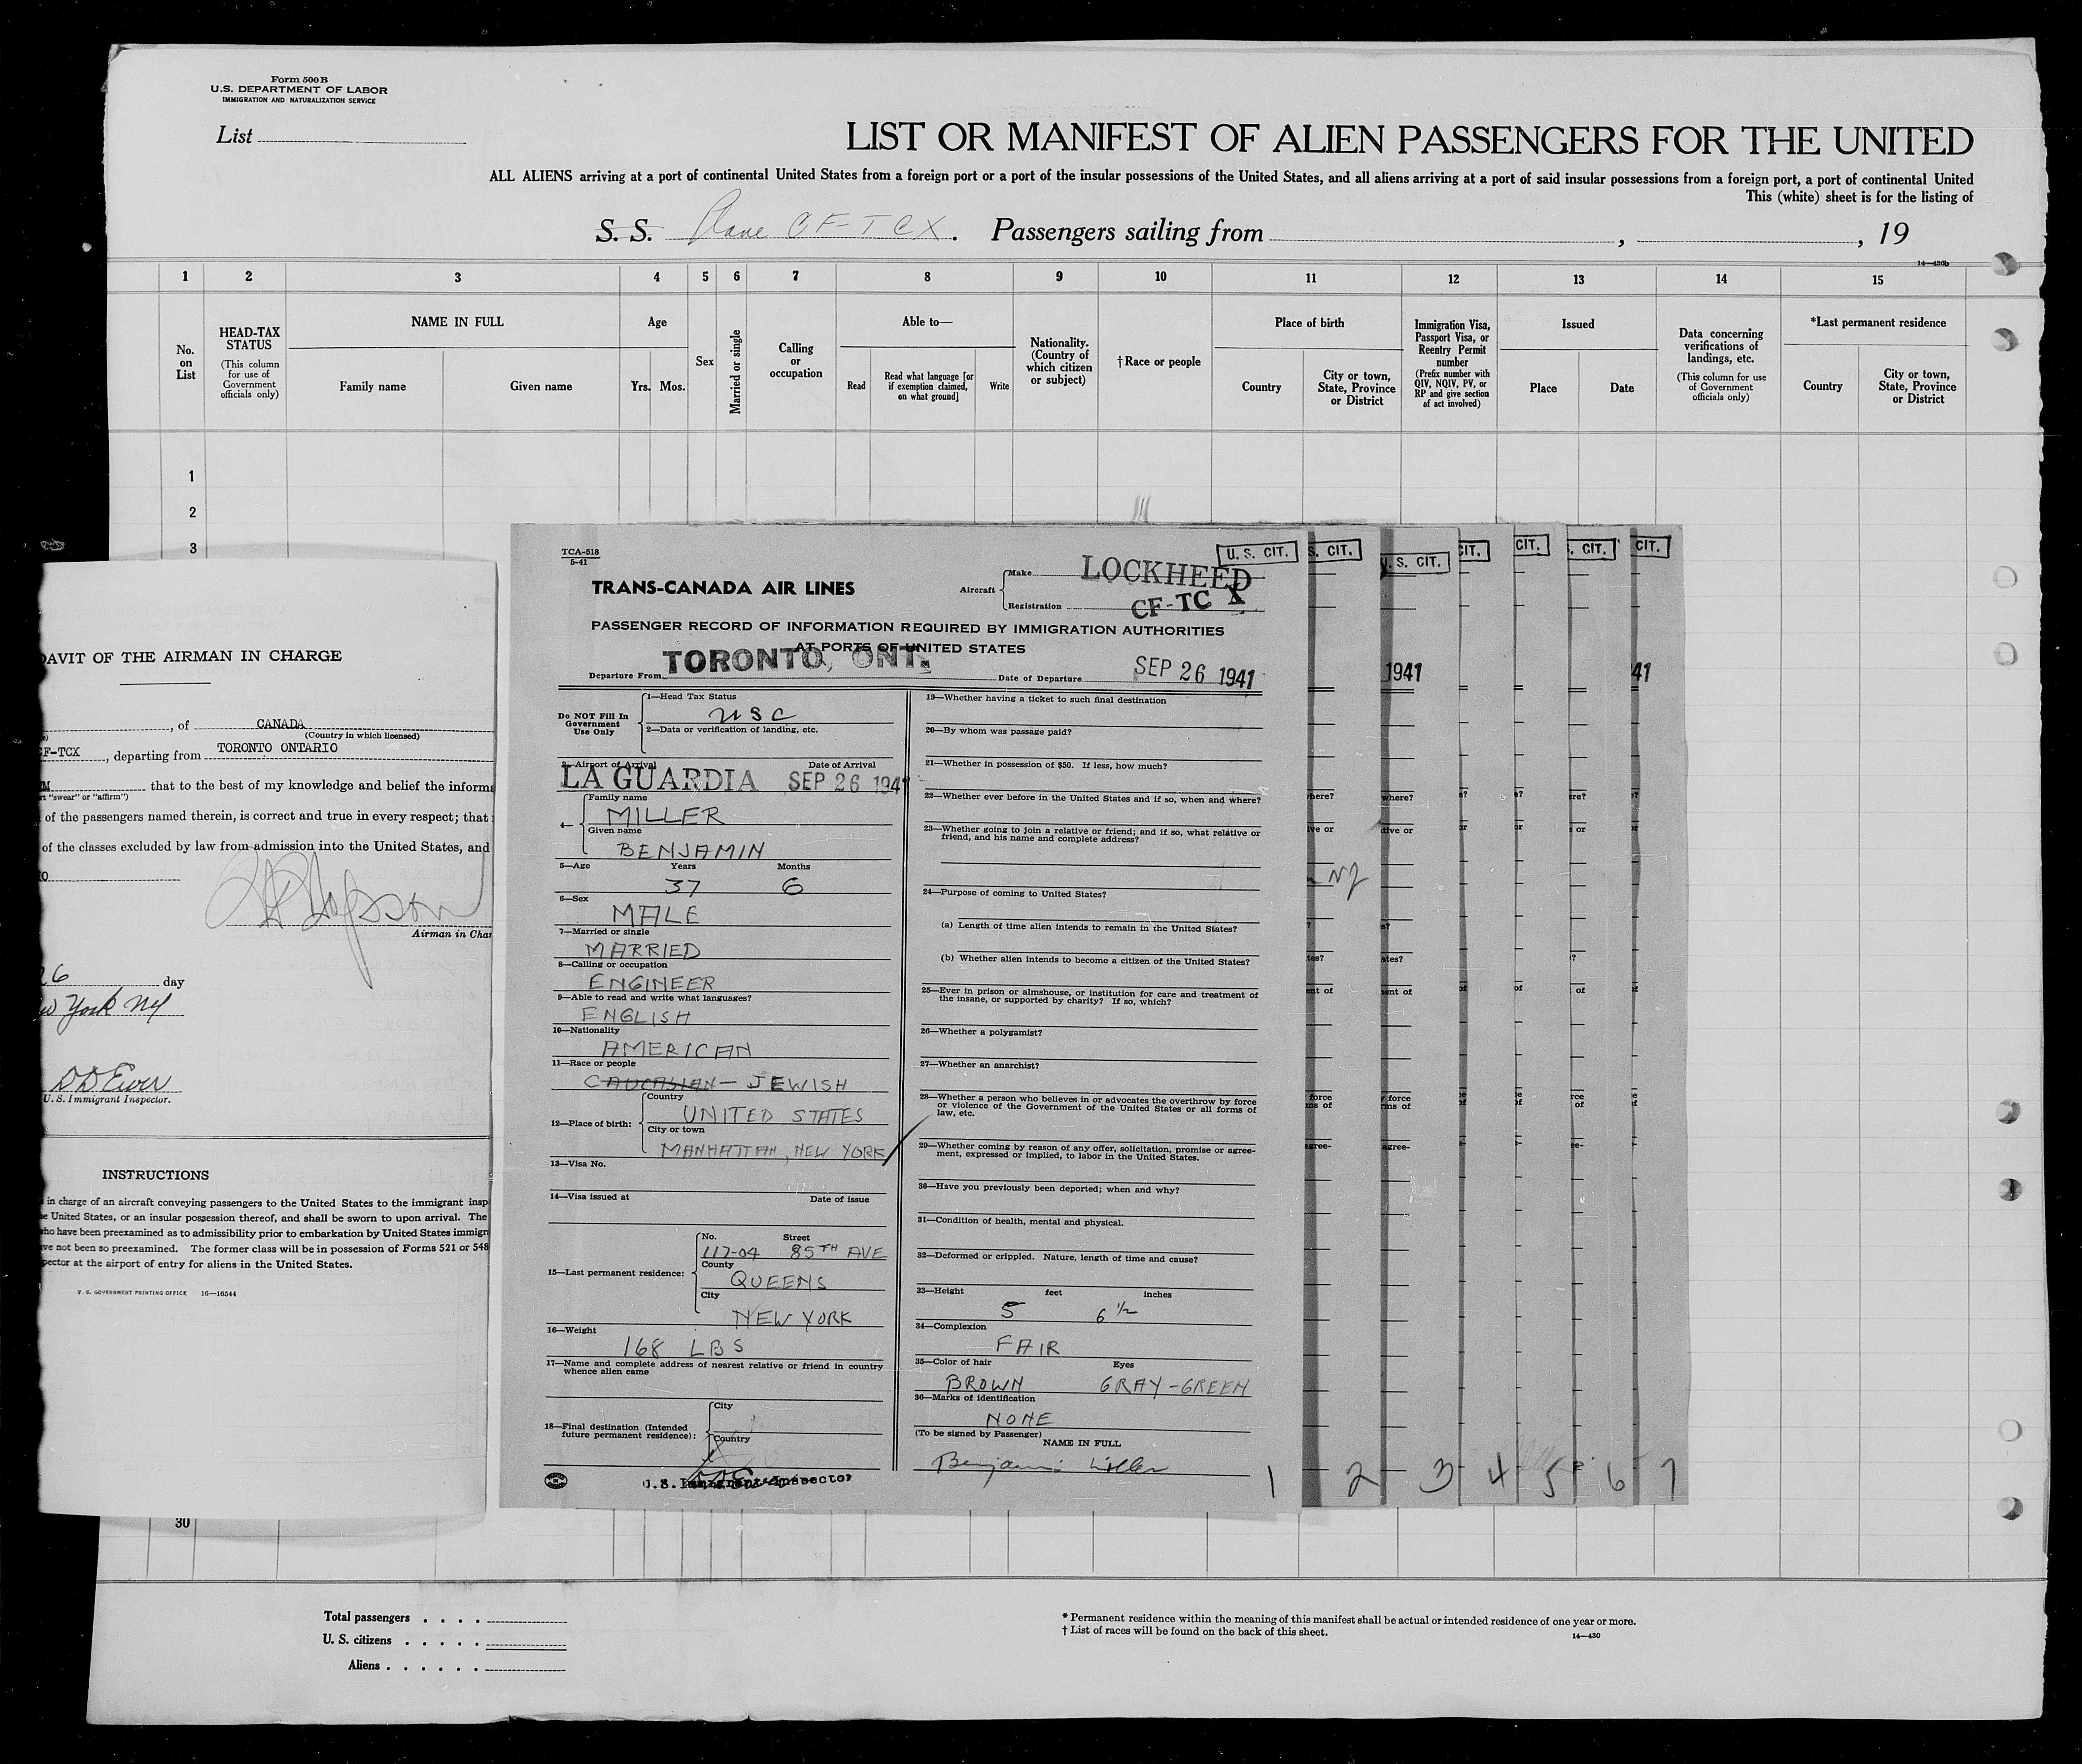 Form 500 B
U.S. DEPARTMENT OF LABOR
IMMIGRATION AND NATURALIZATION SERVICE
List
LIST OR MANIFEST OF ALIEN PASSENGERS FOR THE UNITED
ALL ALIENS arriving at a port of continental United States from a foreign port or a port of the insular possessions of the United States, and all aliens arriving at a port of said insular possessions from a foreign port, a port of continental United
This (white) sheet is for the listing of
S. S. Plane CF-TCX. Passengers sailing from , , 19
14—430b
1 2 3 4 5 6 7 8 9 10 11 12 13 14 15
No. on List
HEAD-TAX STATUS
(This column for use of Government officials only)
NAME IN FULL
Family name Given name
Age
Yrs. Mos.
Sex
Married or single
Calling or occupation
Able to—
Read
Read what language [or if exemption claimed, on what ground]
Write
Nationality. (Country of which citizen or subject)
† Race or people
Place of birth
Country
City or town, State, Province or District
Immigration Visa, Passport Visa, or Reentry Permit number
(Prefix number with QIV, NQIV, PV, or RP and give section of act involved)
Issued
Place Date
Data concerning verifications of landings, etc.
(This column for use of Government officials only)
*Last permanent residence
Country
City or town, State, Province or District
1
2
3
DAVIT OF THE AIRMAN IN CHARGE
, of CANADA
(Country in which licensed)
CF-TCX, departing from TORONTO ONTARIO
that to the best of my knowledge and belief the informa
"swear" or "affirm")
of the passengers named therein, is correct and true in every respect; that
of the classes excluded by law from admission into the United States, and
Airman in Char
26 day
New York NY
D D Ewer
U. S. Immigrant Inspector.
INSTRUCTIONS
in charge of an aircraft conveying passengers to the United States to the immigrant insp
e United States, or an insular possession thereof, and shall be sworn to upon arrival. The
ho have been preexamined as to admissibility prior to embarkation by United States immign
ve not been so preexamined. The former class will be in possession of Forms 521 or 548
pector at the airport of entry for aliens in the United States.
U. S. GOVERNMENT PRINTING OFFICE 16—16544
TCA-518
5-41
TRANS-CANADA AIR LINES
U. S. CIT.
Aircraft
Make LOCKHEED
Registration CF-TC X
PASSENGER RECORD OF INFORMATION REQUIRED BY IMMIGRATION AUTHORITIES
AT PORTS OF UNITED STATES
Departure From TORONTO, ONT. Date of Departure SEP 26 1941
Do NOT Fill In Government Use Only
1—Head Tax Status
USC
2—Data or verification of landing, etc.
3—Airport of Arrival Date of Arrival
LA GUARDIA SEP 26 1941
4— Family name
MILLER
Given name
BENJAMIN
5—Age Years Months
37 6
6—Sex
MALE
7—Married or single
MARRIED
8—Calling or occupation
ENGINEER
9—Able to read and write what languages?
ENGLISH
10—Nationality
AMERICAN
11—Race or people
CAUCASIAN — JEWISH
12—Place of birth:
Country
UNITED STATES
City or town
MANHATTAN, NEW YORK
13—Visa No.
14—Visa issued at Date of issue
15—Last permanent residence:
No. Street
117-04 85TH AVE
County
QUEENS
City
NEW YORK
16—Weight
168 LBS
17—Name and complete address of nearest relative or friend in country whence alien came
18—Final destination (Intended future permanent residence):
City
Country
U.S. Immigrant Inspector
19—Whether having a ticket to such final destination
20—By whom was passage paid?
21—Whether in possession of $50. If less, how much?
22—Whether ever before in the United States and if so, when and where?
23—Whether going to join a relative or friend; and if so, what relative or friend, and his name and complete address?
24—Purpose of coming to United States?
(a) Length of time alien intends to remain in the United States?
(b) Whether alien intends to become a citizen of the United States?
25—Ever in prison or almshouse, or institution for care and treatment of the insane, or supported by charity? If so, which?
26—Whether a polygamist?
27—Whether an anarchist?
28—Whether a person who believes in or advocates the overthrow by force or violence of the Government of the United States or all forms of law, etc.
29—Whether coming by reason of any offer, solicitation, promise or agreement, expressed or implied, to labor in the United States.
30—Have you previously been deported; when and why?
31—Condition of health, mental and physical.
32—Deformed or crippled. Nature, length of time and cause?
33—Height feet inches
5 6 1/2
34—Complexion
FAIR
35—Color of hair Eyes
BROWN GRAY-GREEN
36—Marks of identification
NONE
(To be signed by Passenger)
NAME IN FULL
Benjamin Miller
1 2 3 4 5 6 7
S. CIT.
. S. CIT.
CIT.
CIT.
. CIT.
CIT.
1941
41
NY
30
Total passengers
U. S. citizens
Aliens
* Permanent residence within the meaning of this manifest shall be actual or intended residence of one year or more.
† List of races will be found on the back of this sheet.
14—430